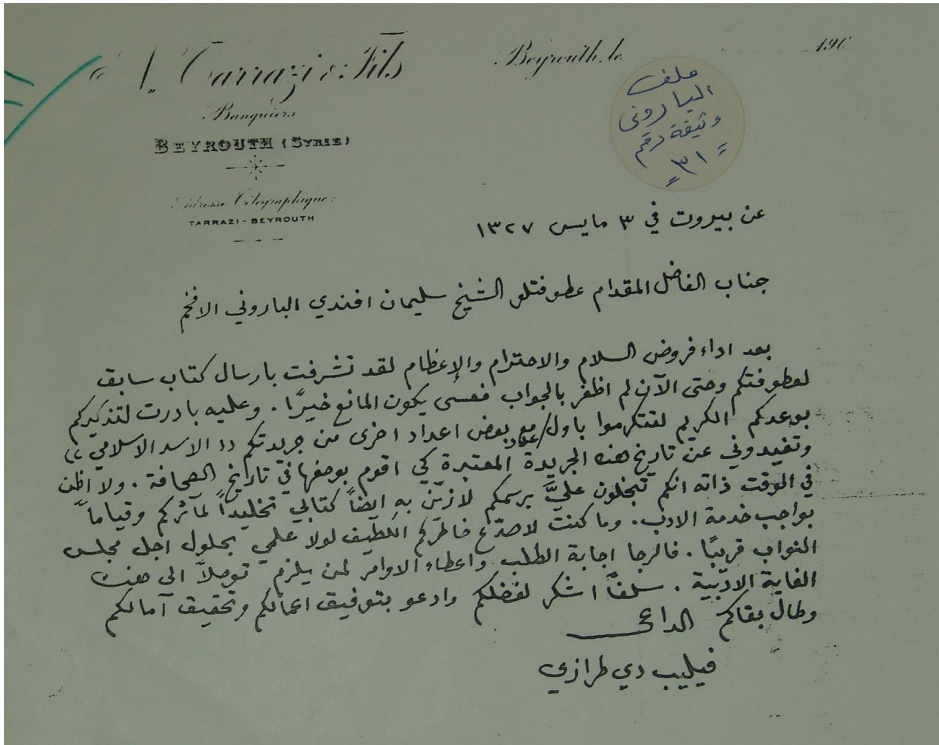 A. Tarrazi & Fils
Banquiers
BEYROUTH (SYRIE)
Adresse Télégraphique:
TARRAZI - BEYROUTH
Beyrouth, le 190
ملف
الباروني
وثيقة رقم
= ٣١ =
عن بيروت في ٣ مايس ١٣٢٧
جناب الفاضل المقدام عطوفتلو الشيخ سليمان افندي الباروني الافخم
بعد اداء فروض السلام والاحترام والإعظام لقد تشرفت بارسال كتاب سابق
لعطوفتكم وحتى الآن لم اظفر بالجواب فعسى يكون المانع خيرًا. وعليه بادرت لتذكيركم
بوعدكم الكريم لتتكرموا باول عدد مع بعض اعداد اخرى من جريدتكم "الاسد الاسلامي"
وتفيدوني عن تاريخ هذه الجريدة المعتبرة كي اقوم بوصفها في تاريخ الصحافة. ولا اظن
في الوقت ذاته انكم تبخلون عليَّ برسمكم لازيّن به ايضًا كتابي تخليدًا لمآثركم وقيامًا
بواجب خدمة الادب. وما كنت لاصدّع خاطركم اللطيف لولا علمي بحلول اجل مجلس
النواب قريبًا. فالرجا اجابة الطلب واعطاء الاوامر لمن يلزم توصلاً الى هذه
الغاية الادبية. سلفًا اشكر لفضلكم وادعو بتوفيق اعمالكم وتحقيق آمالكم
وطال بقاكم الداعي
فيليب دي طرازي